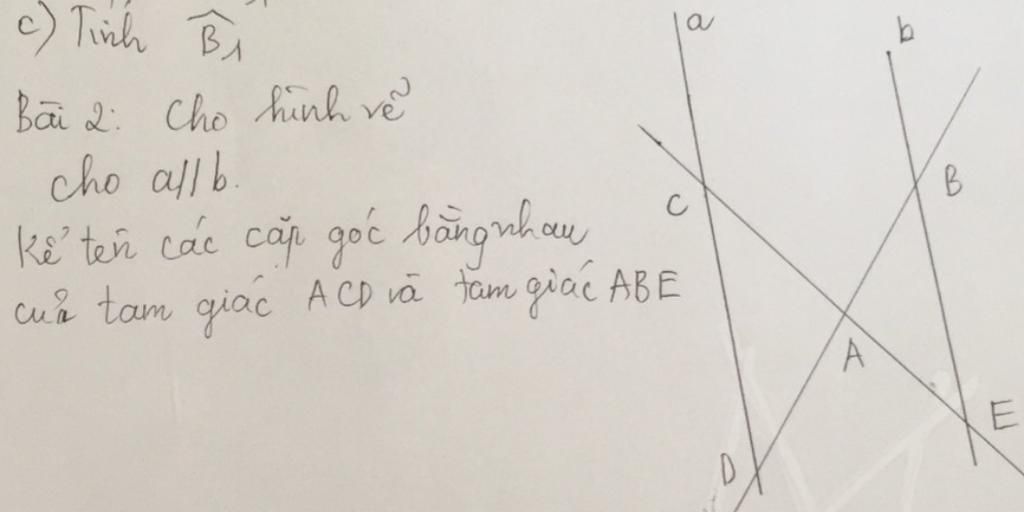 c) Tính B̂₁
Bài 2: Cho hình vẽ
cho a//b.
Kể tên các cặp góc bằng nhau
của tam giác ACD và tam giác ABE
a
b
B
C
A
E
D